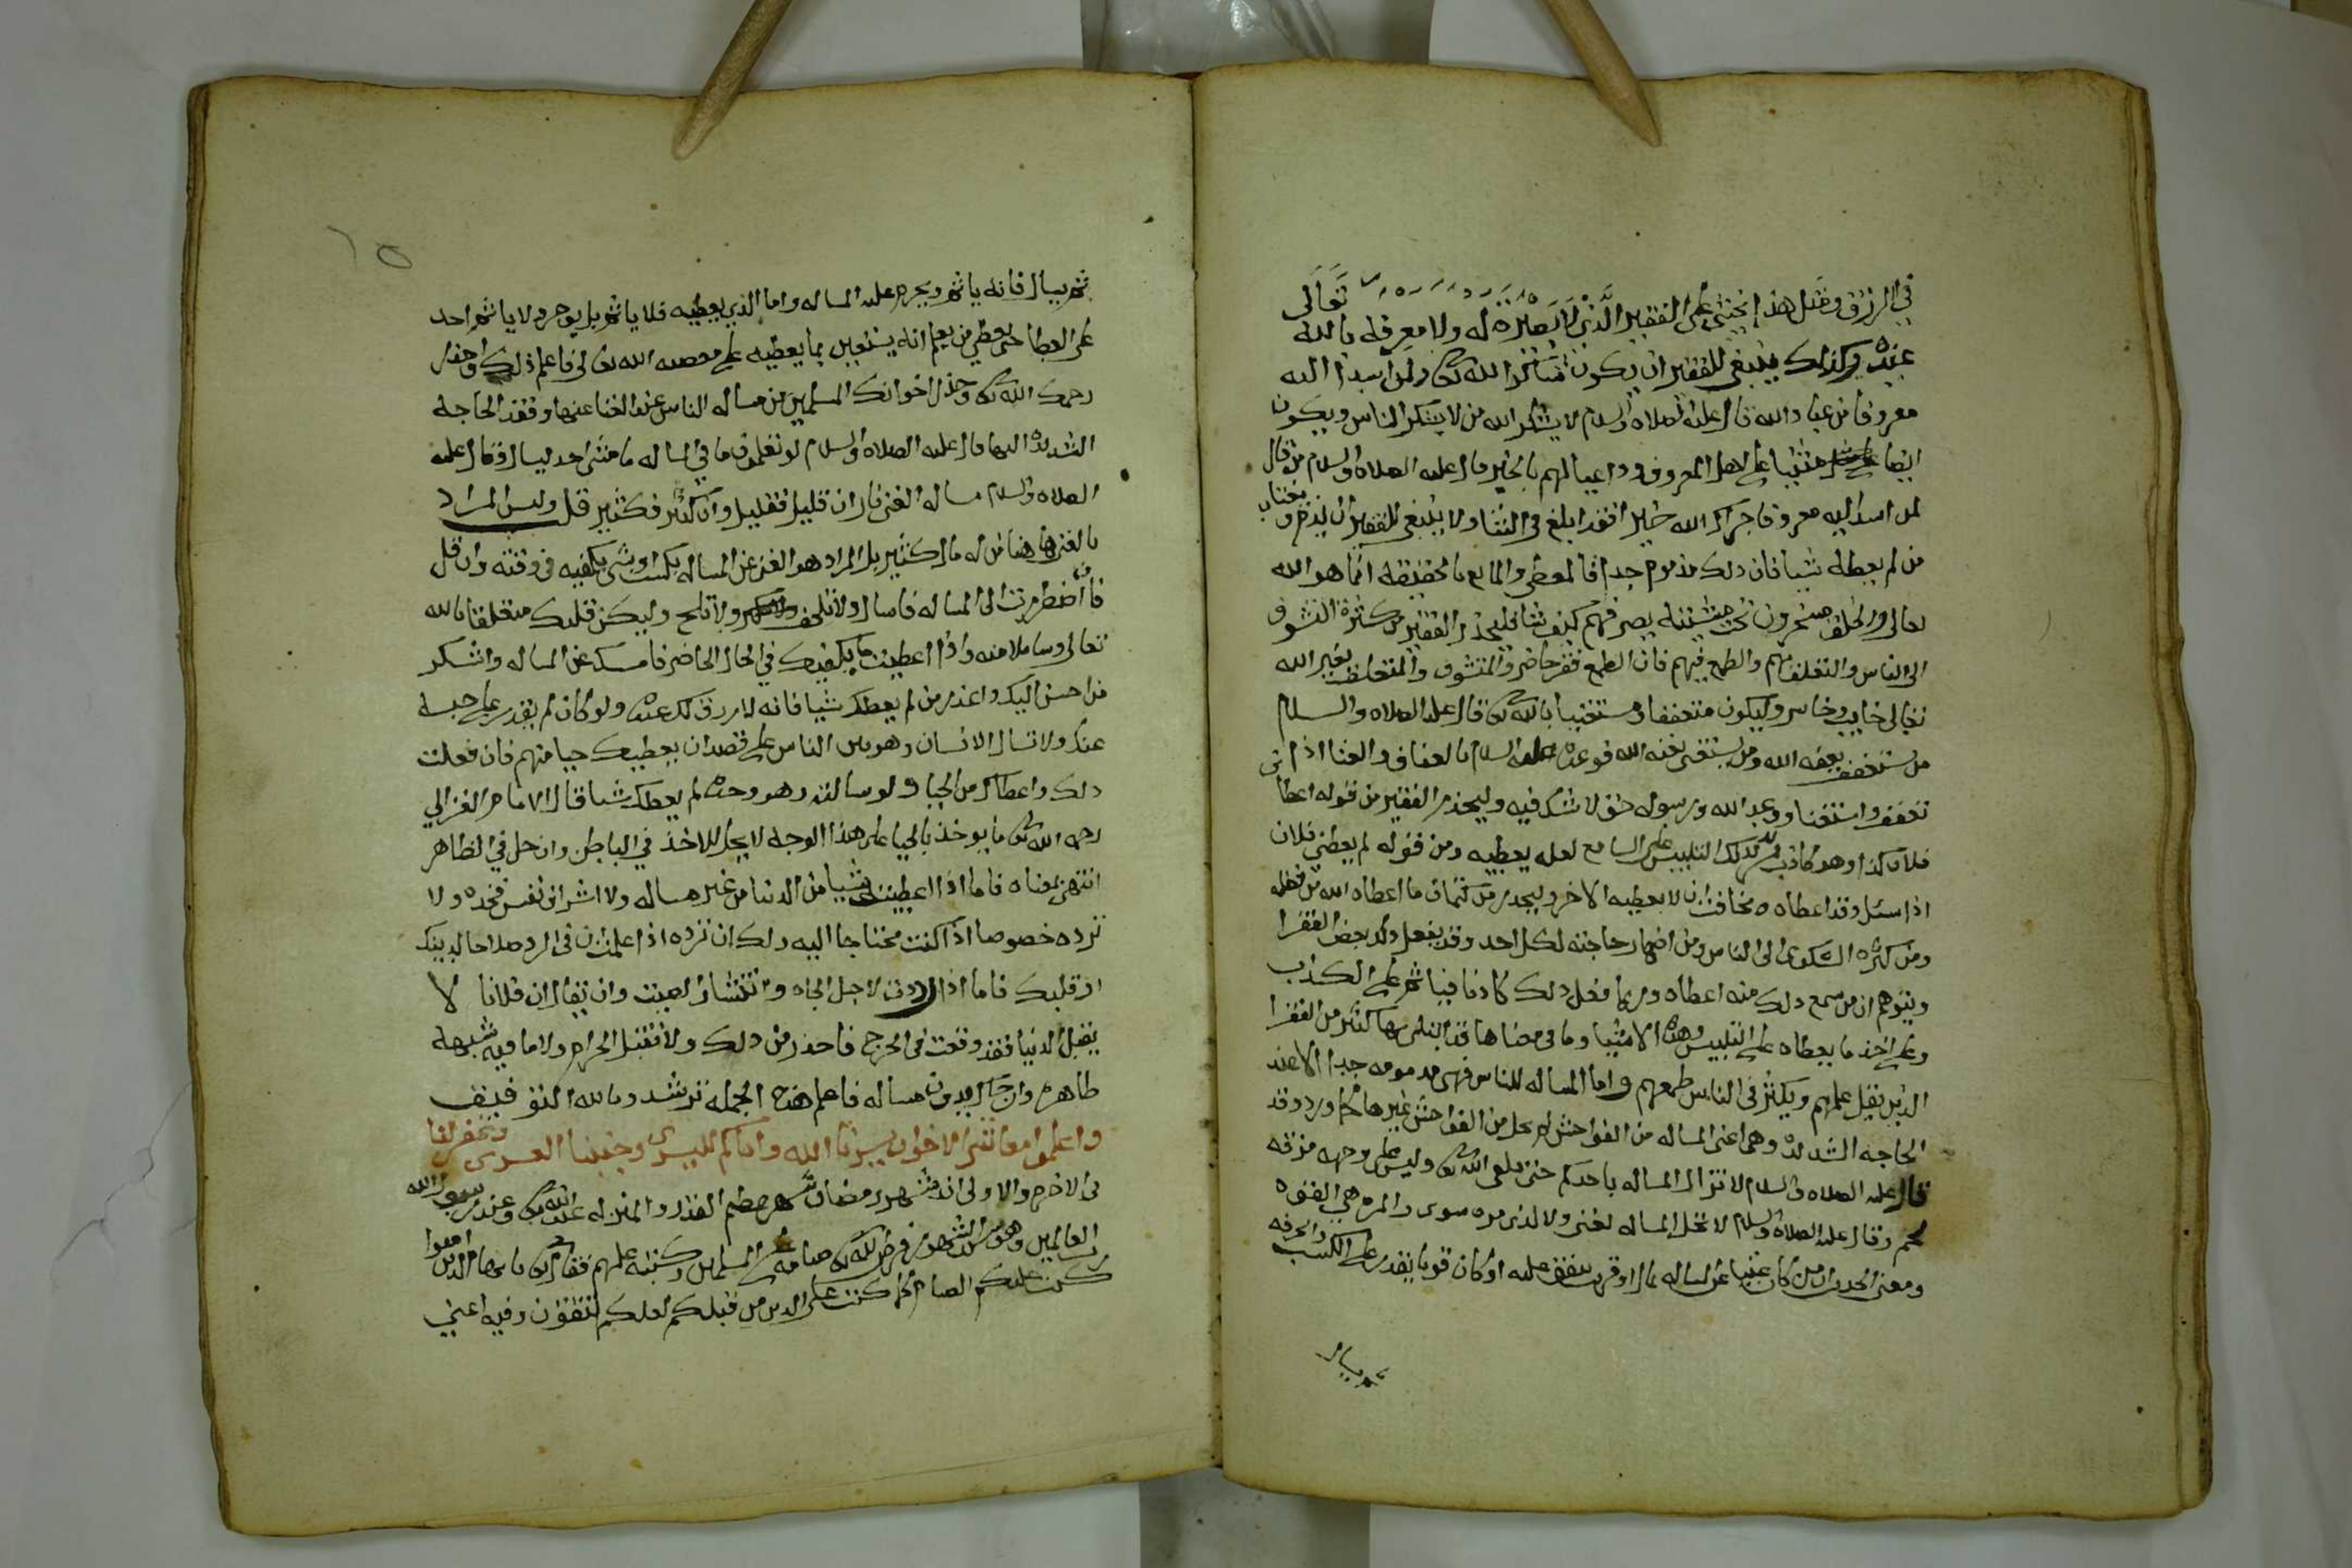 في الرزق ومثل هذا يخشى على الفقير الذي لا بصيرة له ولا معرفة بالله تعالى
عنده وكذلك ينبغي للفقير ان يكون شاكرا لله تعالى ولمن اسدا اليه
معروفا من عباد الله قال عليه الصلاه والسلام لا يشكر الله من لا يشكر الناس ويكون
ايضا مثنيا على اهل المعروف وداعيا لهم بالخير قال عليه الصلاه والسلام من قال
لمن اسدا اليه معروفا جزاك الله خيرا فقد ابلغ في الثنا ولا ينبغي للفقير ان يذم ويغتاب
من لم يعطه شيا فان ذلك مذموم جدا فالمعطي والمانع بالحقيقة انما هو الله
تعالى والخلق مسخرون تحت مشيئته يصرفهم كيف شا فليحذر الفقير من كثرة التشوف
الى الناس والتعلق بهم والطمع فيهم فان الطمع فقر حاضر والمتشوف والمتعلق بغير الله
تعالى خايب وخاسر وليكون متعففا ومستغنيا بالله تعالى قال عليه الصلاه والسلام
من يستعفف يعفه الله ومن يستغني يغنه الله فوعده عليه السلام بالعفاف والغنا اذا
تعفف واستغنا ووعد الله ورسوله حق لا شك فيه وليحذر الفقير من قوله اعطا
فلان كذا وهو كاذب لذلك التلبيس على السامع لعله يعطيه ومن قوله لم يعطني فلان
اذا سئل وقد اعطاه مخافة ان لا يعطيه الاخر وليحذر من كتمان ما اعطاه الله من فضله
ومن كثره الشكوى الى الناس ومن اظهار حاجته لكل احد وقد يفعل ذلك بعض الفقرا
ويتوهم ان من سمع ذلك منه اعطاه وربما فعل ذلك كاذبا فياثم على الكذب
وعلى اخذ ما يعطاه على التلبيس وهذه الاشيا وما في معناها قد ابتلي بها كثير من الفقرا
الذين يقل علمهم ويكثر في الناس طمعهم واما المساله للناس فهي مذمومه جدا الا عند
الحاجه الشديدة وهي اعني المساله من الفواحش لم يحل من الفواحش غيرها كما ورد وقد
قال عليه الصلاه والسلام لا تزال المساله باحدكم حتى يلقى الله تعالى وليس على وجهه مزقه
لحم وقال عليه الصلاه والسلام لا تحل المساله لغني ولا لذي مره سوى والمره هي القوه
ومعنى الحديث ان من كان غنيا عن المساله بمال او قريب ينفق عليه او كان قويا يقدر على الكسب والحرفه
ثم يسال
ثم يسال فانه ياثم ويحرم عليه المساله واما الذي يعطيه فلا ياثم بل يوجر ولا ياثم احد
على العطا حتى يعطي من يعلم انه يستعين بما يعطيه على معصيه الله تعالى فاعلم ذلك واحذر
رحمك الله تعالى وحذر اخوانك المسلمين من مساله الناس عند الغنا عنها وفقد الحاجة
الشديدة اليها قال عليه الصلاه والسلام لو تعلمون ما في المساله ما مشى احد ليسال وقال عليه
الصلاه والسلام مساله الغني نار ان قليل فقليل وان كثير فكثير قلت وليس المراد
بالغني هنا من له مال كثير بل المراد هو الغني عن المساله بكسب او بشي يكفيه في وقته وان قل
فان اضطررت الى المساله فاسال ولا تلحف ولا تلح وليكن قلبك متعلقا بالله
تعالى وساملا منه واذا اعطيت ما يكفيك في الحال الحاضر فامسك عن المساله واشكر
من احسن اليك واعذر من لم يعطك شيا فانه لا رزق لك عنده ولو كان لم يقدر على حبسه
عنك ولا تسال الانسان وهو بين الناس على قصد ان يعطيك حيا منهم فان فعلت
ذلك واعطاك من الحيا ولو سالته وهو وحده لم يعطك شيا قال الامام الغزالي
رحمه الله تعالى ما يوخذ بالحيا على هذا الوجه لا يحل للاخذ في الباطن وان حل في الظاهر
انتهى بمعناه فاما اذا اعطيت شيا من الدنيا من غير مساله ولا اشراف نفس فخذه ولا
ترده خصوصا اذا كنت محتاجا اليه ولك ان ترده اذا علمت ان في الرد صلاحا لدينك
او قلبك فاما اذا رددت لاجل الجاه وانتشار الصيت وان يقال ان فلانا لا
يقبل الدنيا فقد وقعت في الحرج فاحذر من ذلك ولا تقبل الحرام ولا ما فيه شبهة
ظاهرة وان جاك بدون مساله فاعلم هذه الجمله ترشد وبالله التوفيق
واعلموا معاشر الاخوان يسرنا الله واياكم لليسرى وجنبنا العسرى وغفر لنا
في الاخرى والاولى ان شهر رمضان شهر عظيم القدر والمنزله عند الله تعالى وعند رسوله الله
رب العالمين وهو سيد الشهور فرض الله تعالى صيامه على المسلمين وكتبه عليهم فقال تعالى يا ايها الذين امنوا
كتب عليكم الصيام كما كتب على الذين من قبلكم لعلكم تتقون وفيه اعني